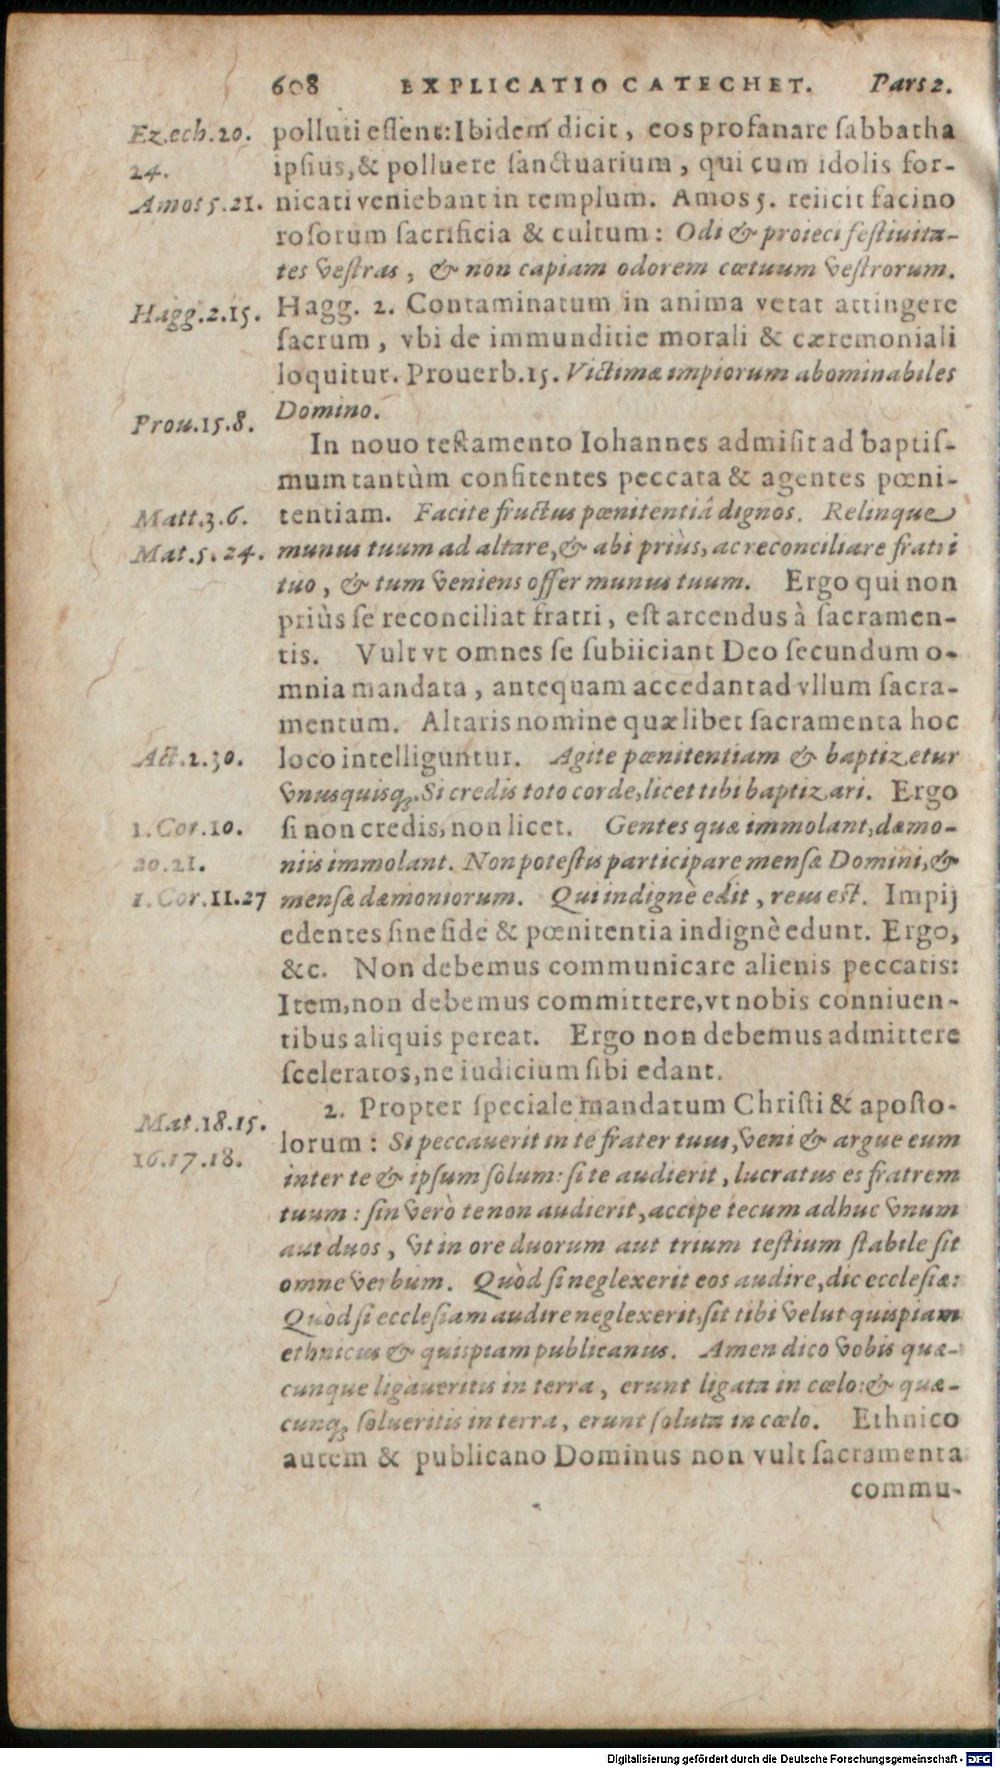 608 EXPLICATIO CATECHET. Pars 2.
Ezech. 20. polluti eſſent: Ibidem dicit, eos profanare ſabbatha
24. ipſius, & polluere ſanctuarium, qui cum idolis for-
Amos 5. 21. nicati veniebant in templum. Amos 5. reiicit facino
roſorum ſacrificia & cultum: Odi & proieci feſtiuita-
tes veſtras, & non capiam odorem cœtuum veſtrorum.
Hagg. 2. 15. Hagg. 2. Contaminatum in anima vetat attingere
ſacrum, vbi de immunditie morali & cæremoniali
loquitur. Prouerb. 15. Victimæ impiorum abominabiles
Prou. 15. 8. Domino.
In nouo teſtamento Iohannes admiſit ad baptiſ-
mum tantùm confitentes peccata & agentes pœni-
Matt. 3. 6. tentiam. Facite fructus pœnitentiâ dignos. Relinque
Mat. 5. 24. munus tuum ad altare, & abi priùs, ac reconciliare fratri
tuo, & tum veniens offer munus tuum. Ergo qui non
priùs ſe reconciliat fratri, eſt arcendus à ſacramen-
tis. Vult vt omnes ſe ſubiiciant Deo ſecundum o-
mnia mandata, antequam accedant ad vllum ſacra-
mentum. Altaris nomine quælibet ſacramenta hoc
Act. 2. 30. loco intelliguntur. Agite pœnitentiam & baptizetur
vnuſquiſq;. Si credis toto corde, licet tibi baptizari. Ergo
1. Cor. 10. ſi non credis, non licet. Gentes quæ immolant, dæmo-
20. 21. niis immolant. Non poteſtis participare menſæ Domini, &
1. Cor. 11. 27 menſæ dæmoniorum. Qui indignè edit, reus eſt. Impij
edentes ſine fide & pœnitentia indignè edunt. Ergo,
&c. Non debemus communicare alienis peccatis:
Item, non debemus committere, vt nobis conniuen-
tibus aliquis pereat. Ergo non debemus admittere
ſceleratos, ne iudicium ſibi edant.
2. Propter ſpeciale mandatum Chriſti & apoſto-
Mat. 18. 15. lorum: Si peccauerit in te frater tuus, veni & argue eum
16. 17. 18. inter te & ipſum ſolum: ſi te audierit, lucratus es fratrem
tuum: ſin verò te non audierit, accipe tecum adhuc vnum
aut duos, vt in ore duorum aut trium teſtium ſtabile ſit
omne verbum. Quòd ſi neglexerit eos audire, dic eccleſiæ:
Quòd ſi eccleſiam audire neglexerit, ſit tibi velut quiſpiam
ethnicus & quiſpiam publicanus. Amen dico vobis quæ-
cunque ligaueritis in terra, erunt ligata in cœlo: & quæ-
cunq; ſolueritis in terra, erunt ſoluta in cœlo. Ethnico
autem & publicano Dominus non vult ſacramenta
commu-
Digitalisierung gefördert durch die Deutsche Forschungsgemeinschaft - DFG